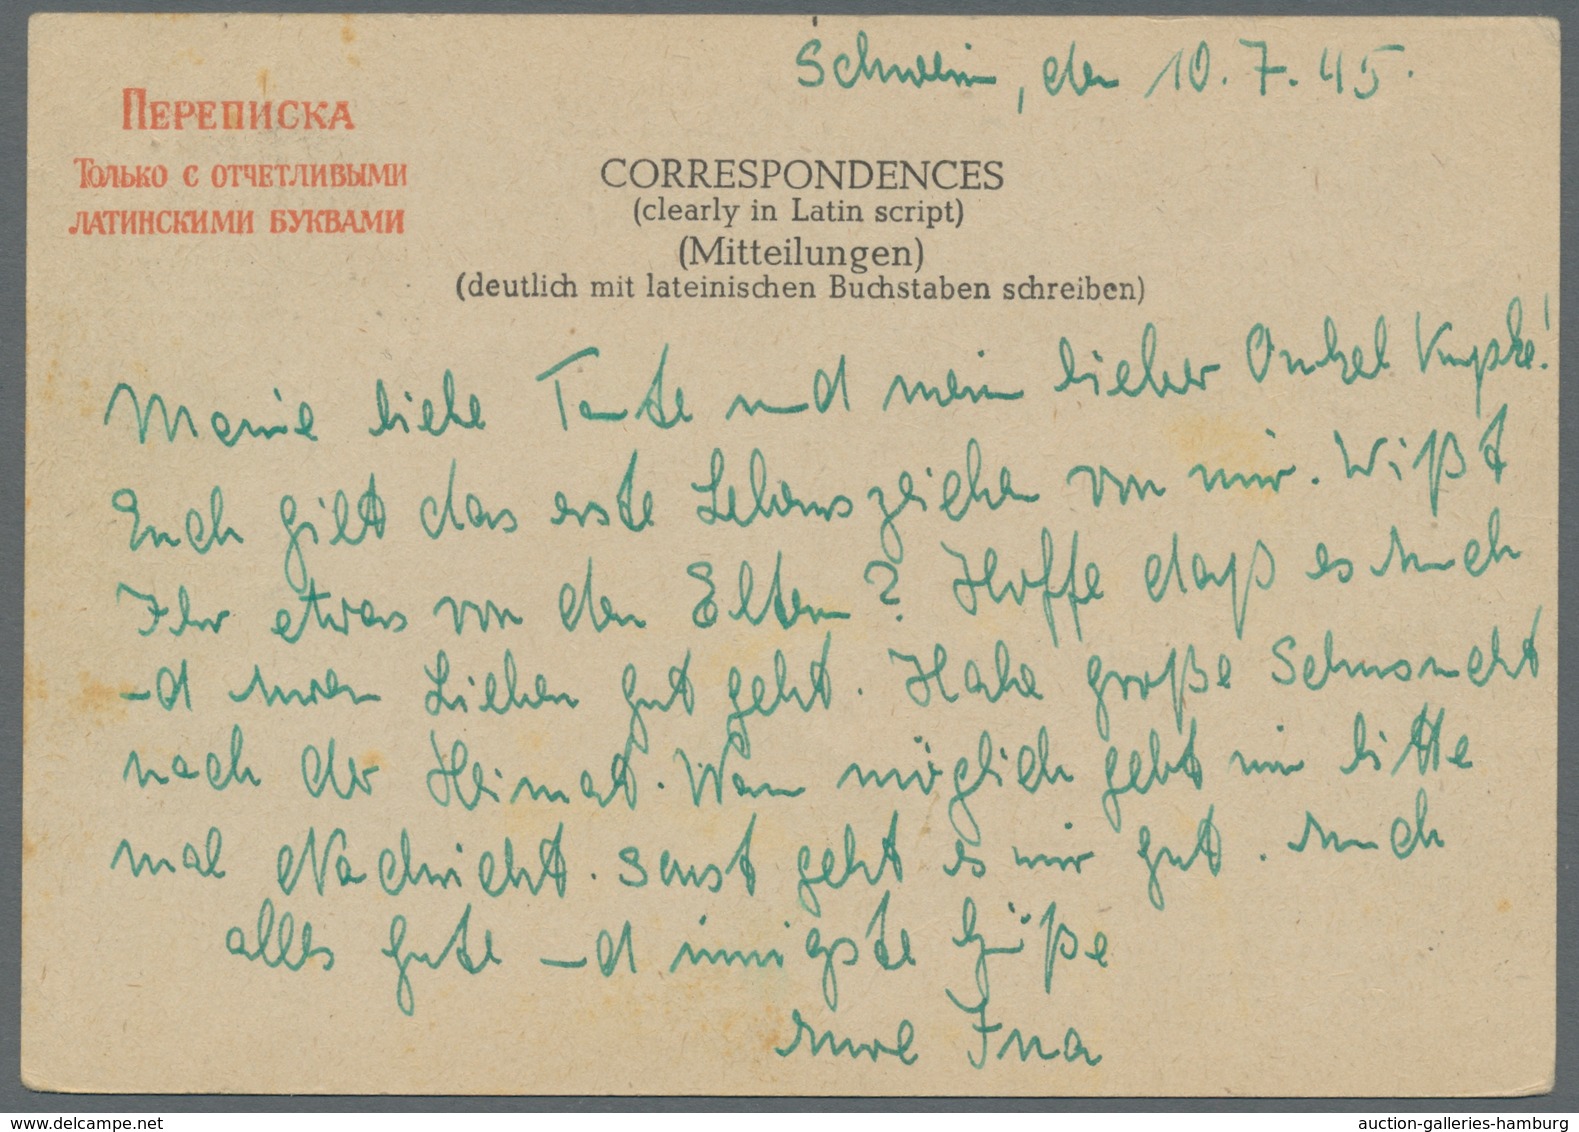 Schwerin, den 10.7.45.
ПЕРЕПИСКА
ТОЛЬКО С ОТЧЕТЛИВЫМИ
ЛАТИНСКИМИ БУКВАМИ
CORRESPONDENCES
(clearly in Latin script)
(Mitteilungen)
(deutlich mit lateinischen Buchstaben schreiben)
Meine liebe Tante und mein lieber Onkel
Euch gilt das erste Lebenszeichen von mir. Wißt
Ihr etwas von den Eltern? Hoffe daß es Euch
und Euren Lieben gut geht. Habe große Sehnsucht
nach der Heimat. Wenn möglich gebt mir bitte
mal Nachricht. Sonst geht es mir gut. Euch
alles Gute und innigste Grüße
Eure Ina
auction-galleries-hamburg